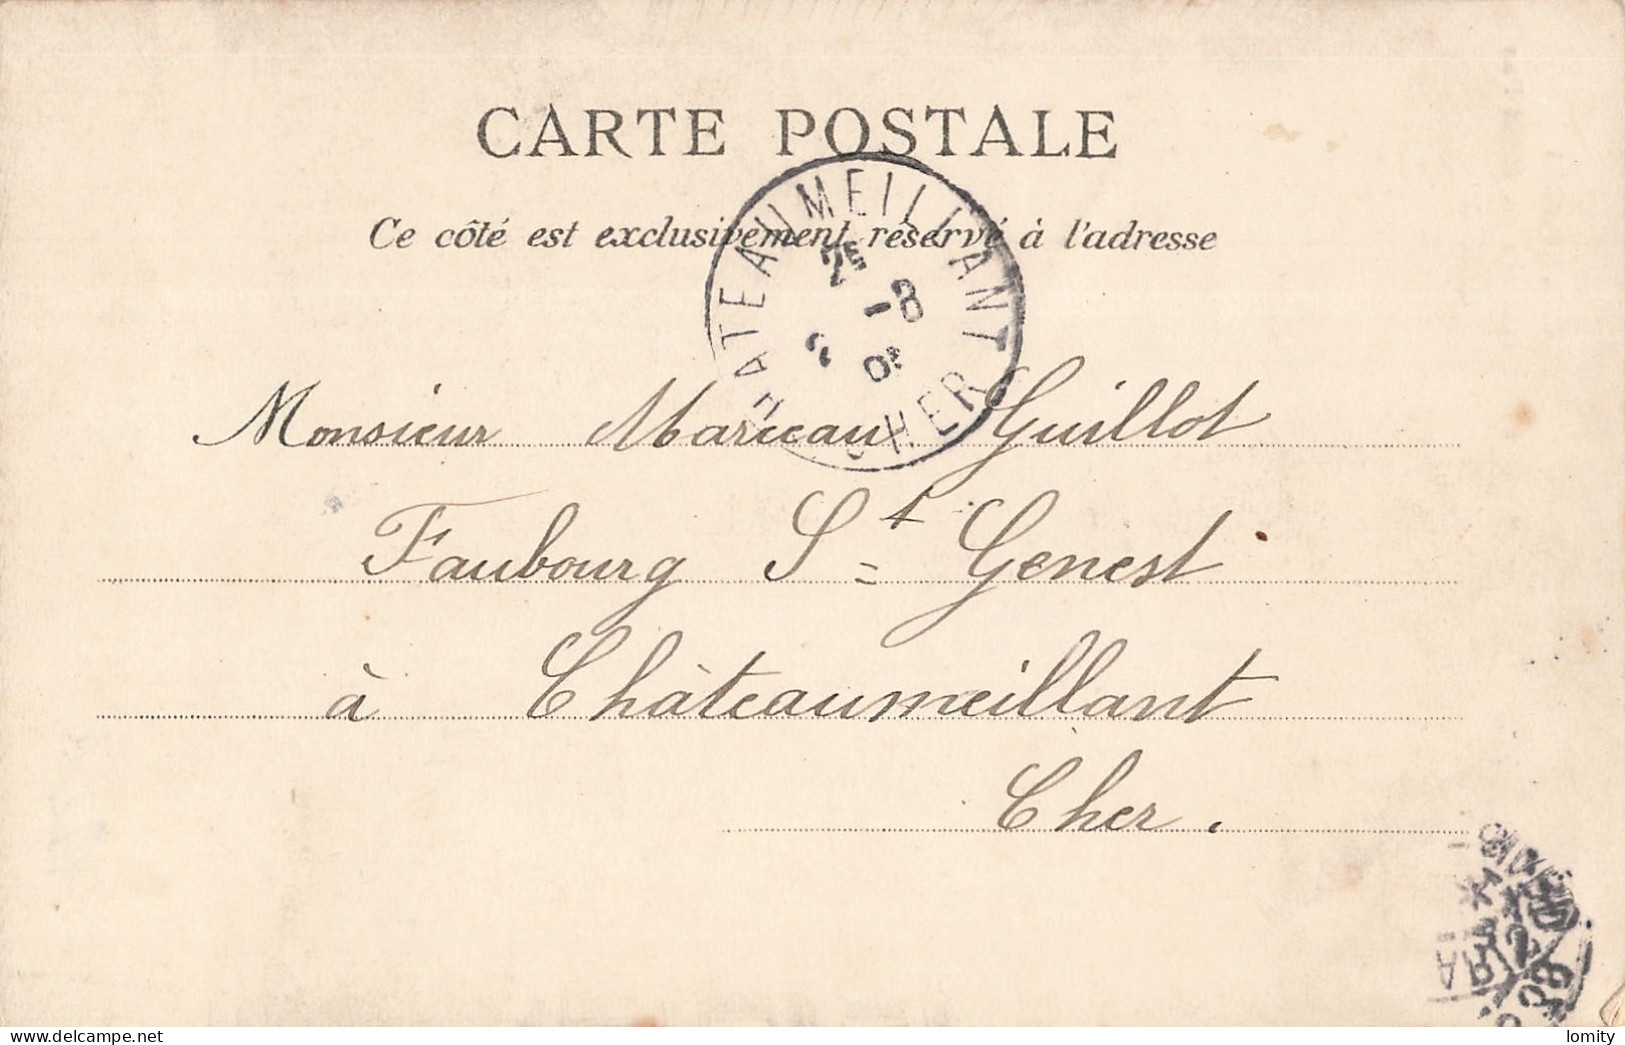 CARTE POSTALE
Ce côté est exclusivement réservé à l'adresse
CHATEAUMEILLANT
25 -8
CHER
Monsieur Marceau Guillot
Faubourg St Genest
à Châteaumeillant
Cher.
delcampe.net
lomity